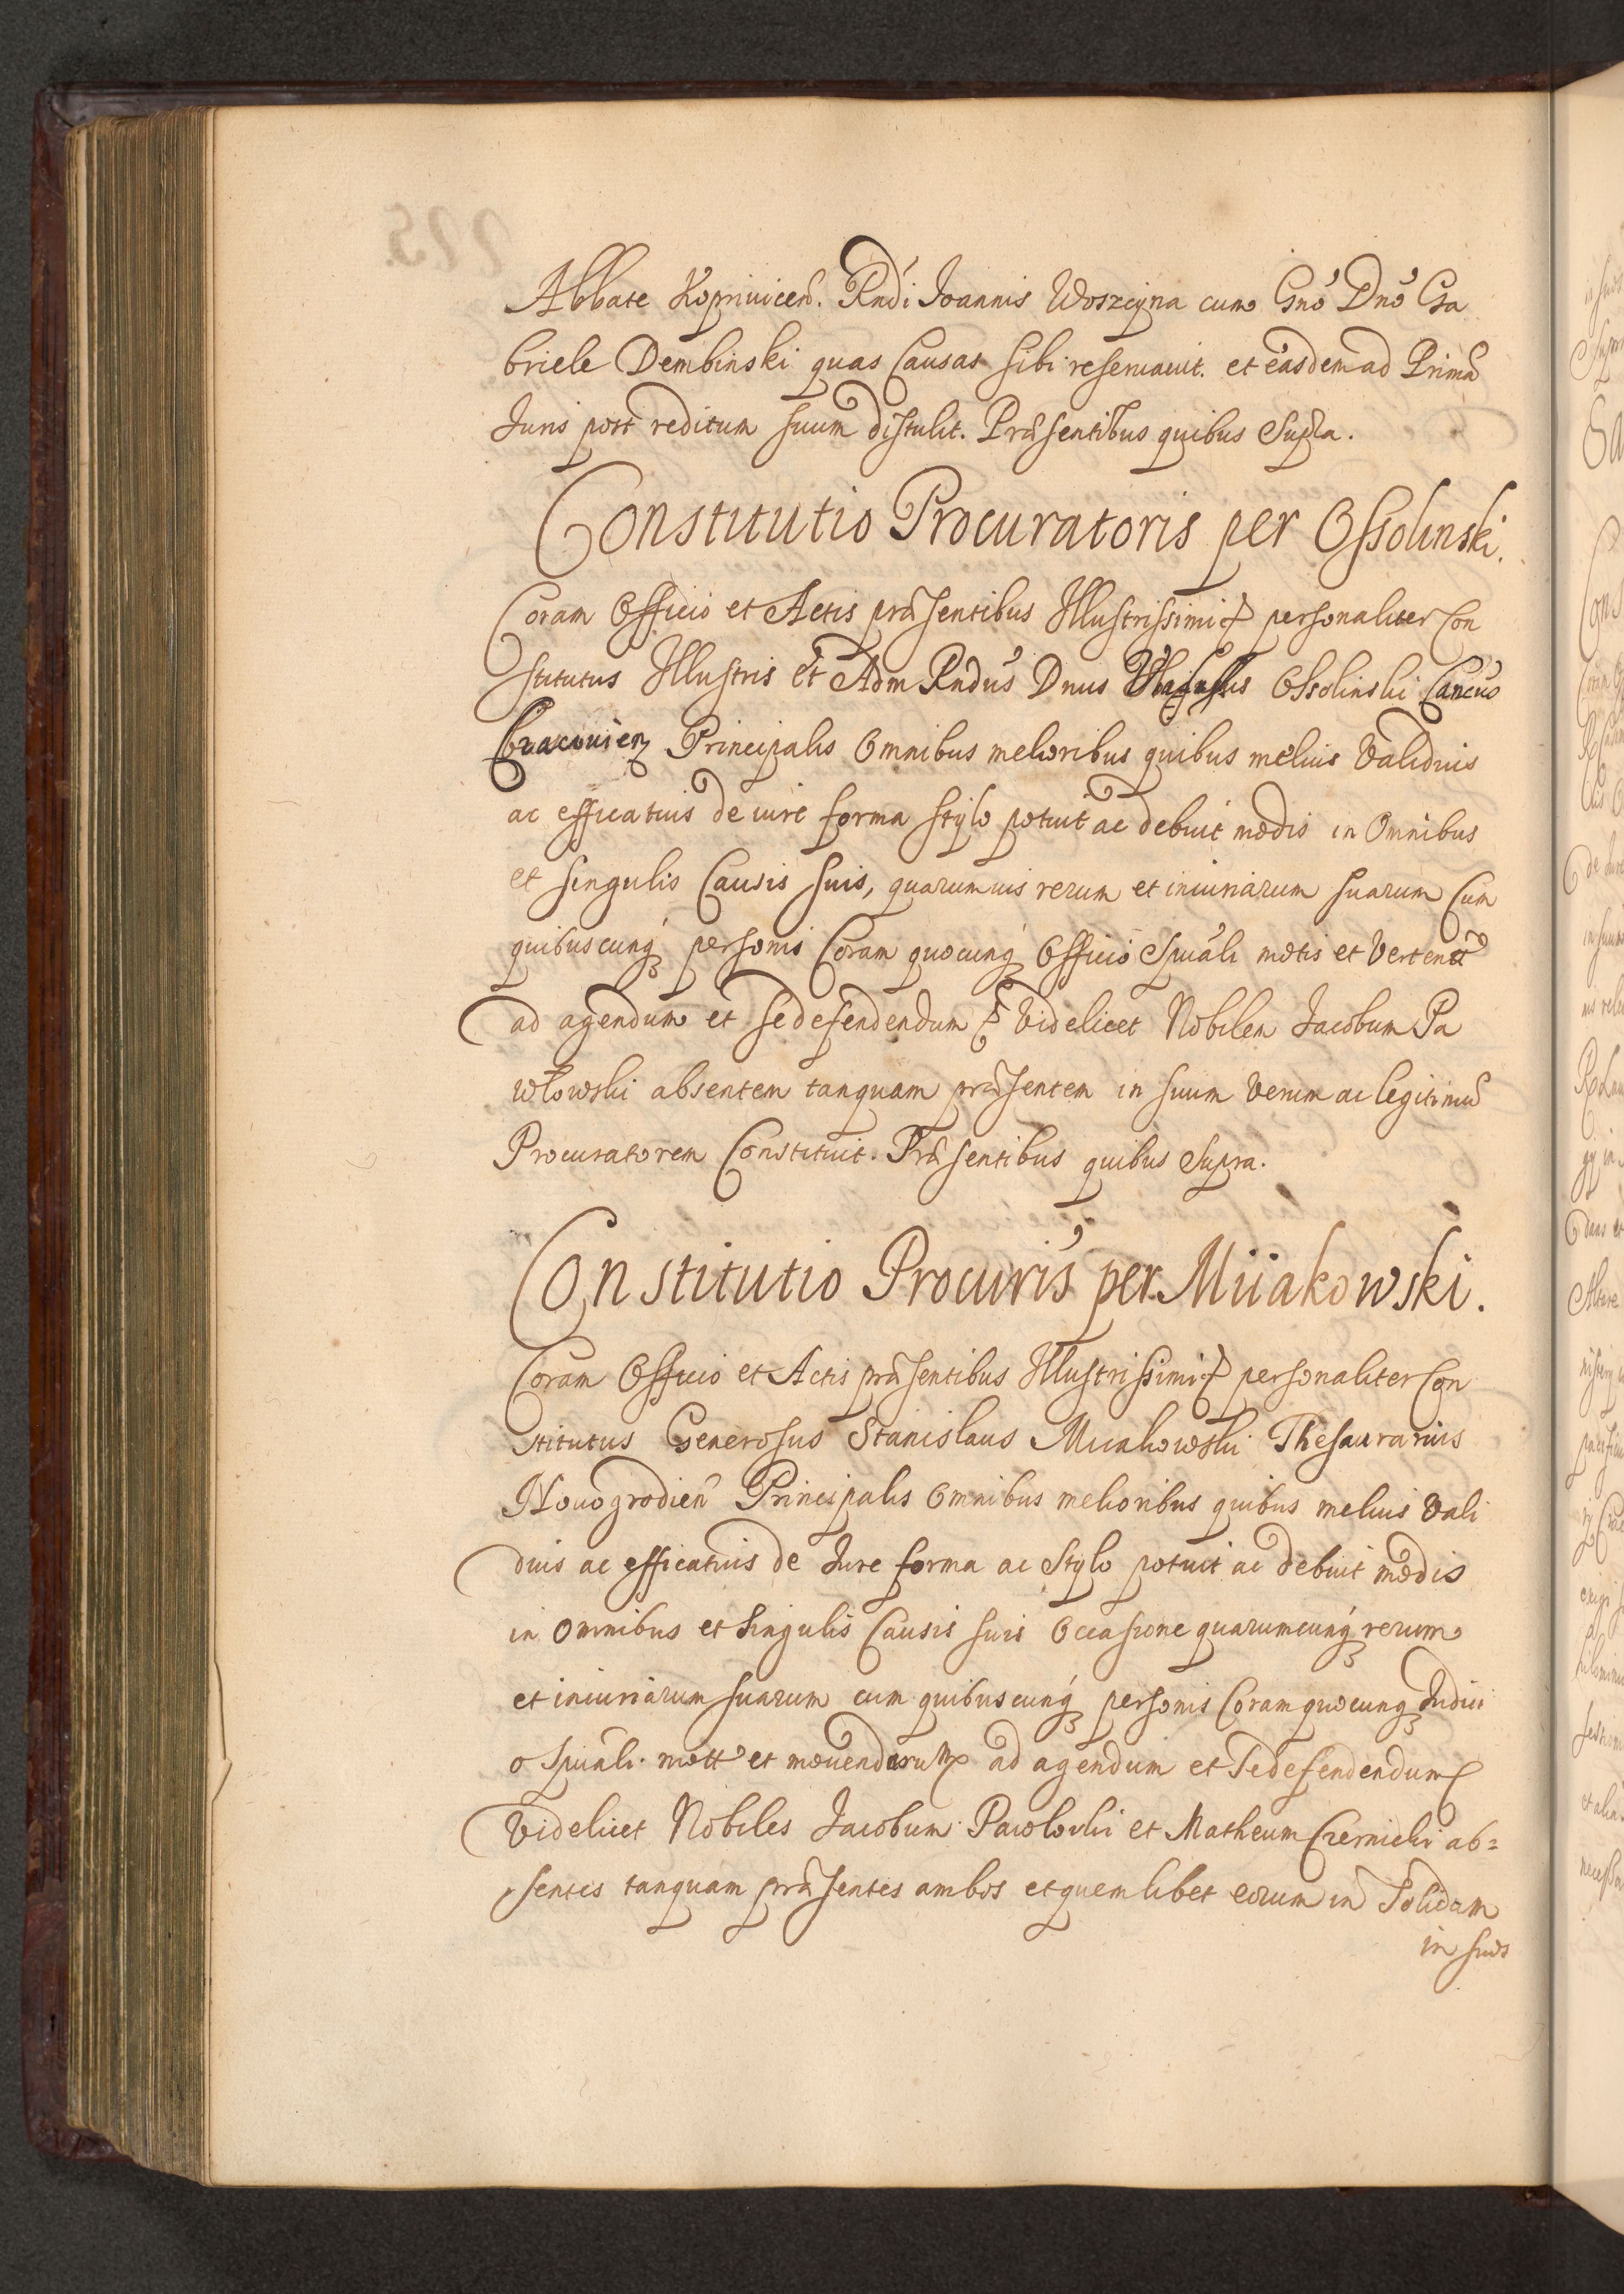 Abbate Koprivicen. Rndi Joannis Woszczyna cum Gnō Dnō Ga
briele Dembinski quas Causas sibi reservavit. et easdem ad Primā
Juris post reditum suum distulit. Præsentibus quibus Supra.
Constitutio Procuratoris per Ossolinski.
Coram Officio et Actis præsentibus Illustrissimi personaliter Con
stitutus Illustris et Adm Rndus Dnus Ossolinski Cancus
Cracovien Principalis Omnibus melioribus quibus melius Validius
ac efficatius de iure forma stylo potuit ac debuit modis in Omnibus
et singulis Causis suis, quarumvis rerum et iniuriarum suarum Cum
quibuscunq personis Coram quocunq Officio Spuali motis et Verten
ad agendum et se defendendum Videlicet Nobilem Jacobum Pa
wlowski absentem tanquam præsentem in suum Verum ac legitimū
Procuratorem Constituit. Præsentibus quibus Supra.
Constitutio Procuris per Miiakowski.
Coram Officio et Actis præsentibus Illustrissimi personaliter Con
stitutus Generosus Stanislaus Miiakowski Thesaurarius
Novogrodien Principalis Omnibus melioribus quibus melius Vali
dius ac efficatius de Jure forma ac Stylo potuit ac debuit modis
in Omnibus et singulis Causis suis Occasione quarumcunq rerum
et iniuriarum suarum cum quibuscunq personis Coram quocunq Judici
o Spuali mott et movendarum ad agendum et se defendendum
Videlicet Nobiles Jacobum Pawlowski et Matheum Czernicki ab=
sentes tanquam præsentes ambos et quemlibet eorum in Solidam
in suos